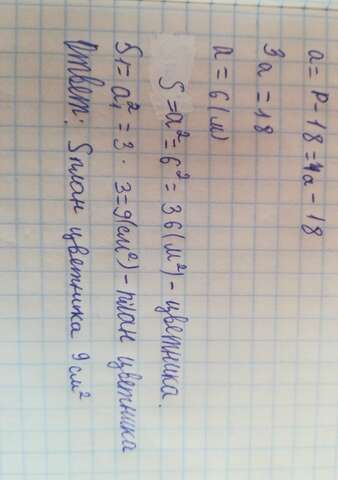 a = P - 18 = 4a - 18
3a = 18
a = 6 (м)
S = a² = 6² = 36 (м²) - цветника.
S₁ = a₁² = 3 · 3 = 9 (см²) - план цветника
Ответ: Sплан цветника 9 см²